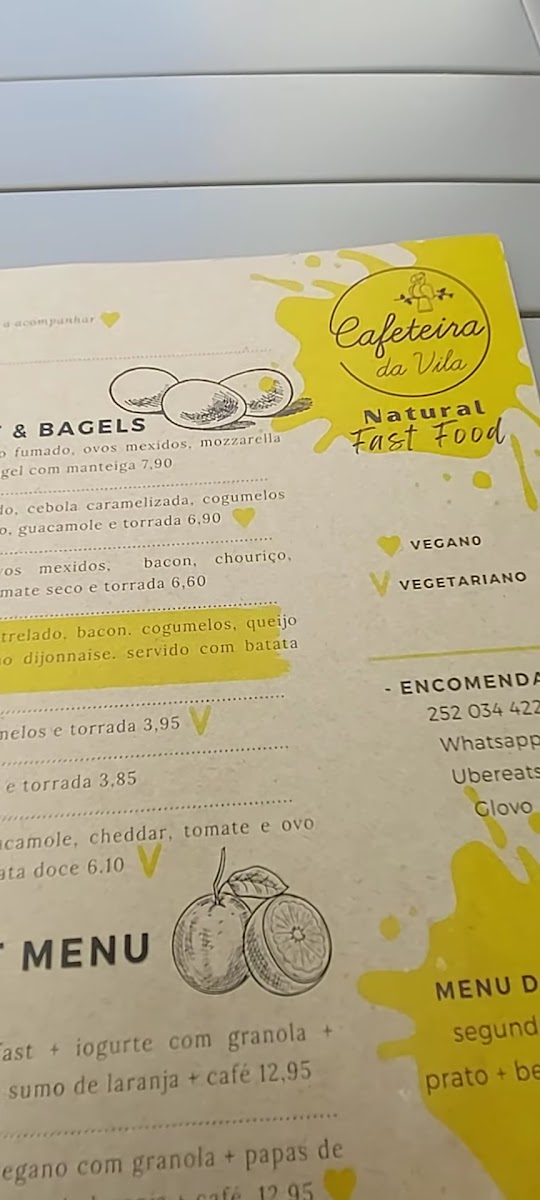 a acompanhar
Cafeteira
da Vila
Natural
Fast Food
& BAGELS
fumado, ovos mexidos, mozzarella
com manteiga 7,90
cebola caramelizada, cogumelos
guacamole e torrada 6,90
mexidos, bacon, chouriço,
seco e torrada 6,60
bacon. cogumelos, queijo
dijonnaise. servido com batata
e torrada 3,95 V
e torrada 3,85
cheddar, tomate e ovo
doce 6.10 V
MENU
+ iogurte com granola +
sumo de laranja + café 12,95
com granola + papas de
café 12,95
VEGANO
V VEGETARIANO
- ENCOMENDA
252 034 422
Whatsapp
Ubereats
Glovo
MENU D
segund
prato + be